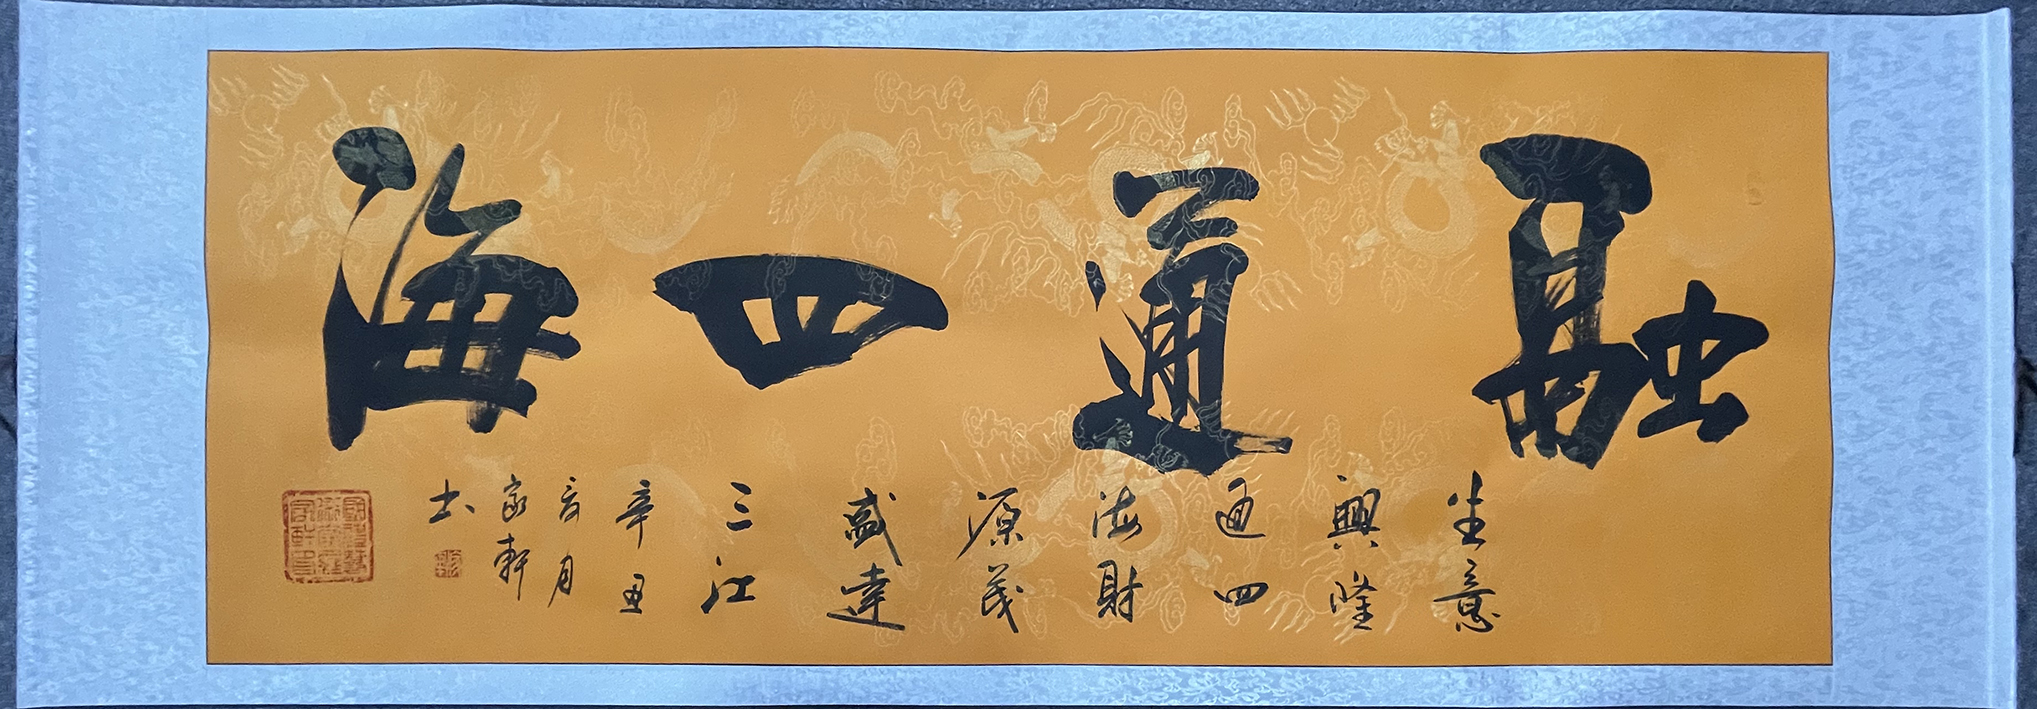 融通四海
生意
興隆
通四
海財
源茂
盛達
三江
辛丑
月
家軒
书